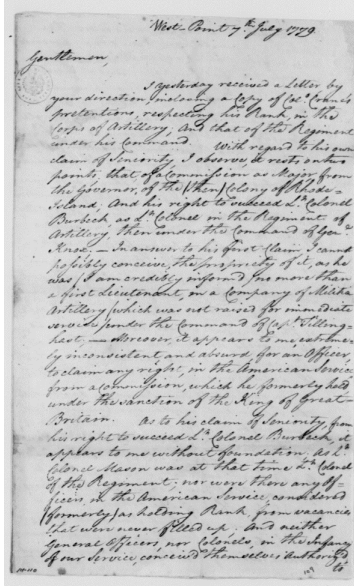 West-Point 7th July 1779
Gentlemen,
I yesterday received a Letter by
your direction, inclosing a Copy of Col.o Crane's
pretentions, respecting his Rank, in the
Corps of Artillery, And that of the Regiment
under his Command.
With regard to his own
claim of Seniority, I observe, it rests on two
points, that of a Commission as Major from
the Governor, of the (then) Colony of Rhode-
Island; And his right to succeed Lt. Colonel
Burbeck as Lt. Colonel in the Regiment of
Artillery then under the Command of Genl.
Knox. — In answer to his first Claim, I cannot
possibly conceive, the propriety of it, as he
was (I am credibly informed) no more than
a first Lieutenant, in a Company of Militia
Artillery (which was not raised for immediate
service) under the Command of Capt. Tilling-
hast, — Moreover, it appears to me extreme-
ly inconsistent and absurd for an Officer
to claim any right, in the American Service
from a Commission, which he formerly held
under the sanction of the King of Great-
Britain.
As to his claim of Seniority, from
his right to succeed Lt. Colonel Burbeck, it
appears to me without foundation. As Lt.
Colonel Mason was at that time Lt. Colonel
of the Regiment; nor were there any Of-
ficers, in the American Service, considered
(formerly) as holding Rank, from vacancies
that were never filled up. And neither
General Officers, nor Colonels, in the Infancy
of our Service, conceived themselves Authorized
to